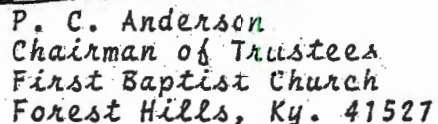 P. C. Anderson
Chairman of Trustees
First Baptist Church
Forest Hills, Ky. 41527